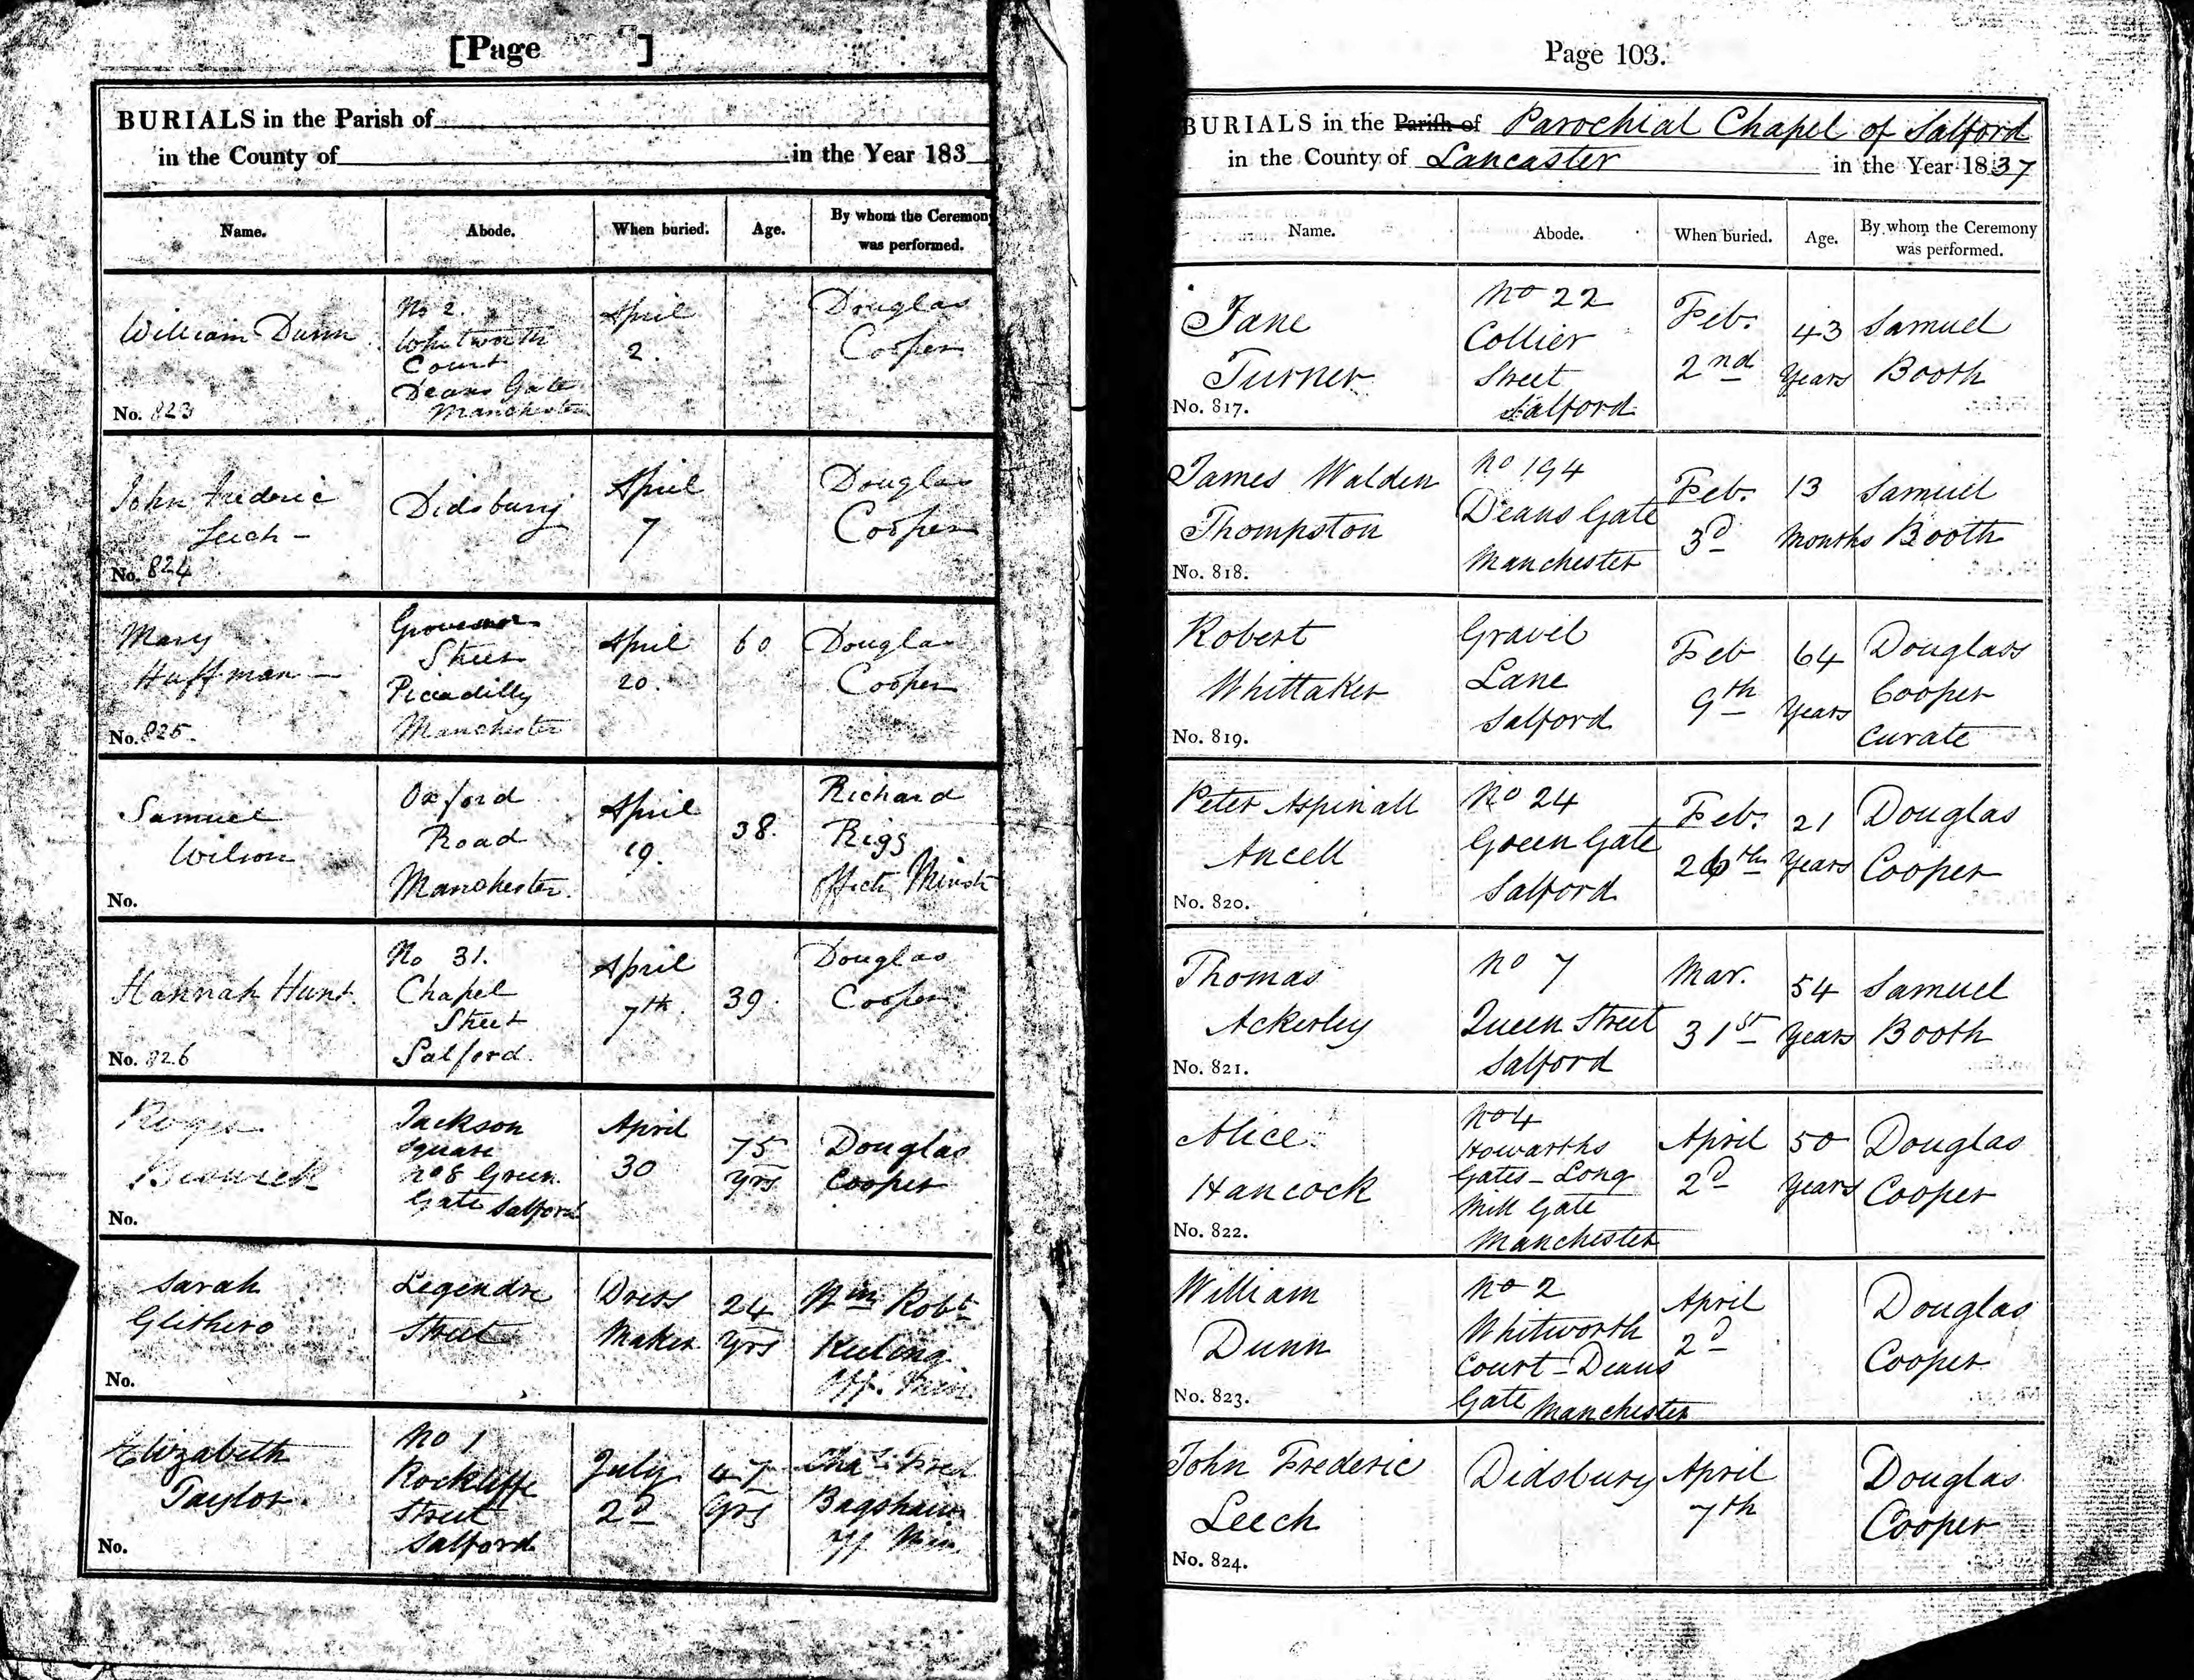 [Page ]
BURIALS in the Parish of
in the County of in the Year 183
Name. Abode. When buried. Age. By whom the Ceremony was performed.
William Dunn
No. 823
No 2.
Whitworth
Court
Deans Gate
Manchester
April
2.
Douglas
Cooper
John Frederic
Leech -
No. 824
Didsbury
April
7
Douglas
Cooper
Mary
Huffman -
No. 825.
Grovesnor
Street
Picadilly
Manchester
April
20.
60
Douglas
Cooper
Samuel
Wilson
No.
Oxford
Road
Manchester.
April
19.
38.
Richard
Rigg
Offict. Minstr
Hannah Hunt.
No. 826
No 31.
Chapel
Street
Salford.
April
7th.
39.
Douglas
Cooper
Roger
Beswick
No.
Jackson
Square
No 8 Green
Gate Salford
April
30
75
yrs
Douglas
Cooper
Sarah
Glithero
No.
Legendre
Street
Dress
Maker
24
yrs
Wm Robt
Keeling
Off. Min.
Elizabeth
Taylor.
No.
No 1
Rockliffe
Street
Salford
July
2d
47
yrs
Chas Fred
Bagshaw
Off Min.
Page 103.
BURIALS in the Parish of Parochial Chapel of Salford
in the County of Lancaster in the Year 1837
Name. Abode. When buried. Age. By whom the Ceremony was performed.
Jane
Turner
No. 817.
No 22
Collier
Street
Salford
Feb.
2nd
43
Years
Samuel
Booth
James Walden
Thompston
No. 818.
No 194
Deans Gate
Manchester
Feb.
3d
13
Months
Samuel
Booth
Robert
Whittaker
No. 819.
Gravel
Lane
Salford
Feb
9th
64
Years
Douglass
Cooper
Curate
Peter Aspinall
Ancell
No. 820.
No 24
Green Gate
Salford
Feb.
26th
21
Years
Douglas
Cooper
Thomas
Ackerley
No. 821.
No 7
Queen Street
Salford
Mar.
31st
54
Years
Samuel
Booth
Alice
Hancock
No. 822.
No 4
Howarths
Gates - Long
Mill Gate
Manchester
April
2d
50
Years
Douglas
Cooper
William
Dunn
No. 823.
No 2
Whitworth
Court - Deans
Gate Manchester
April
2d
Douglas
Cooper
John Frederic
Leech
No. 824.
Didsbury
April
7th
Douglas
Cooper